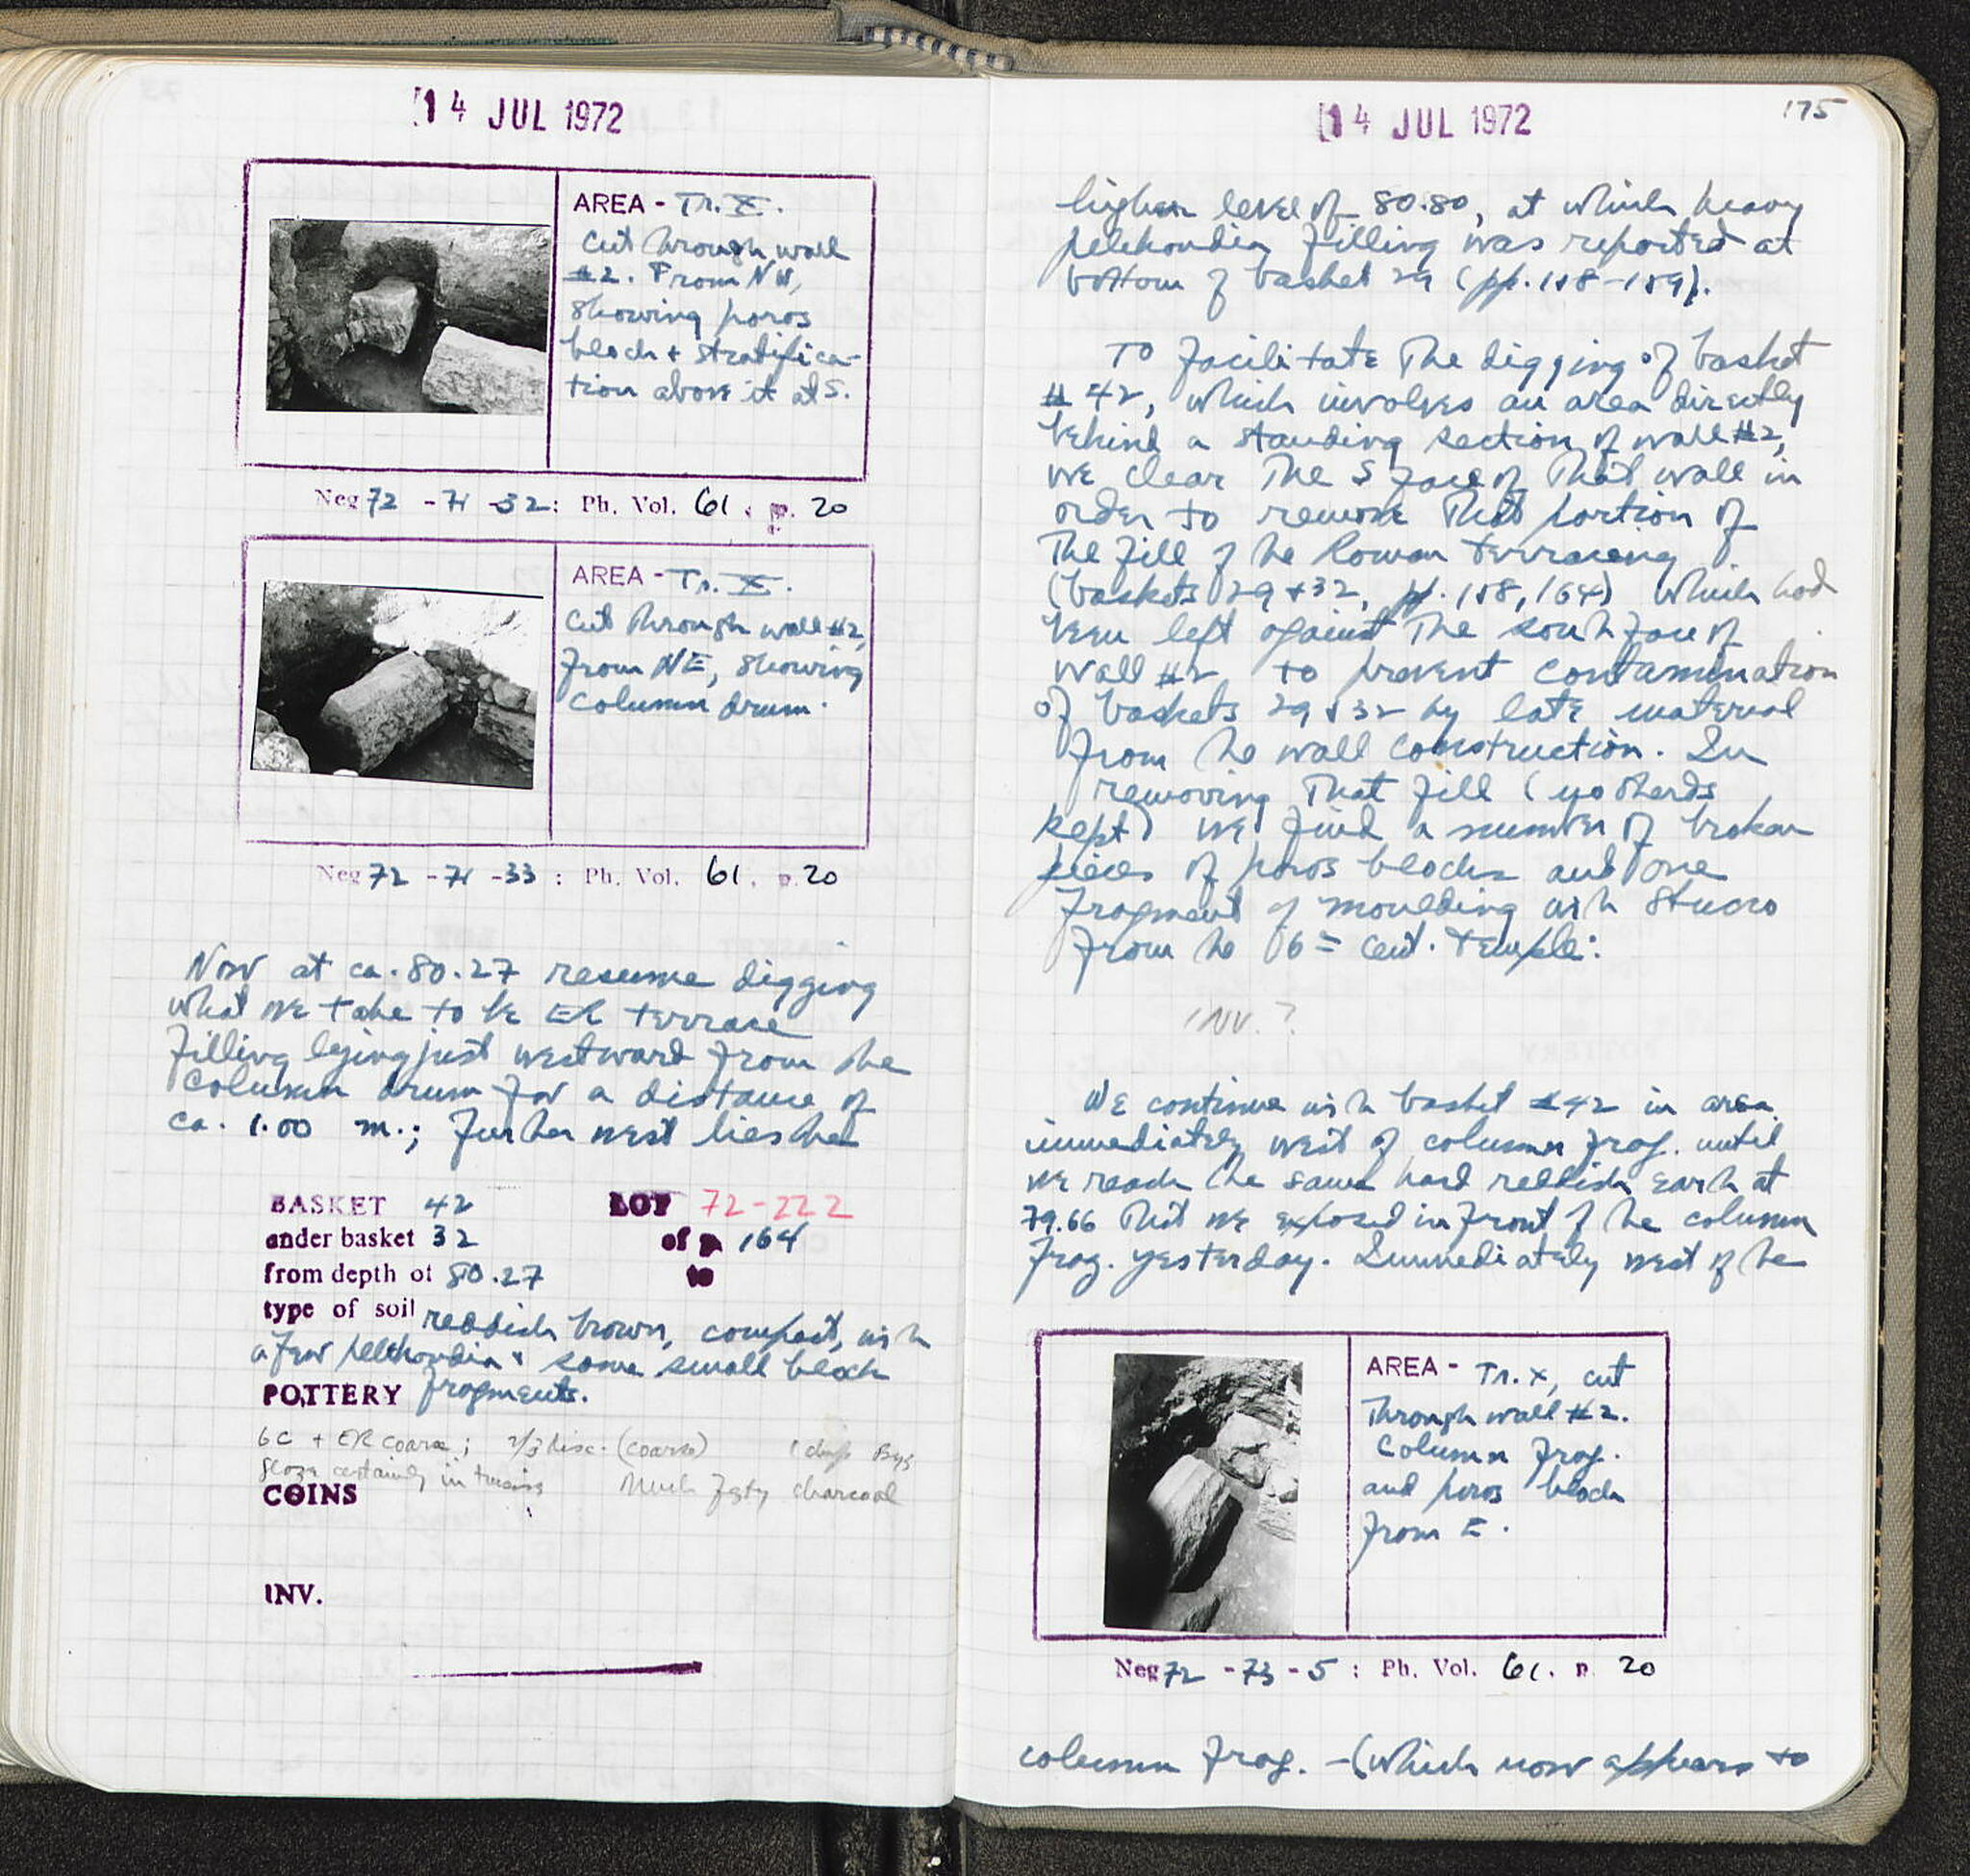 14 JUL 1972
AREA - Tr. X.
Cut through wall
#2. From NW,
showing poros
block + stratifica-
tion above it at S.
Neg 72 - 71 - 32 : Ph. Vol. 61 , p. 20
AREA - Tr. X.
Cut through wall #2,
from NE, showing
column drum.
Neg 72 - 71 - 33 : Ph. Vol. 61 , p. 20
Now at ca. 80.27 resume digging
what we take to be ER terrace
filling lying just westward from the
column drum for a distance of
ca. 1.00 m.; further west lies the
BASKET 42 LOT 72-222
under basket 32 of p 164
from depth of 80.27 to
type of soil reddish brown, compact, with
a few pelekoudia + some small block
fragments.
POTTERY
6C + ER coarse; 2/3 disc. (coarse) 1 Byz
certainly in Much charcoal
COINS
INV.
14 JUL 1972
175
higher level of 80.80, at which heavy
pelekoudia filling was reported at
bottom of basket 29 (pp. 158-159).
To facilitate the digging of basket
# 42, which involves an area directly
behind a standing section of wall #2,
we clear the S face of that wall in
order to remove that portion of
the fill of the Roman terracing
(baskets 29 + 32, pp. 158, 164) which had
been left against the south face of
wall #2 to prevent contamination
of baskets 29 + 32 by late material
from the wall construction. In
removing that fill (no sherds
kept) we find a number of broken
pieces of poros blocks and one
fragment of moulding with stucco
from the 6th cent. temple:
INV. ?
We continue with basket #42 in area
immediately west of column frag. until
we reach the same hard reddish earth at
79.66 that we exposed in front of the column
frag. yesterday. Immediately west of the
AREA - Tr. X, cut
through wall #2.
Column frag.
and poros block
from E.
Neg 72 - 73 - 5 : Ph. Vol. 61 . p. 20
column frag. - (which now appears to